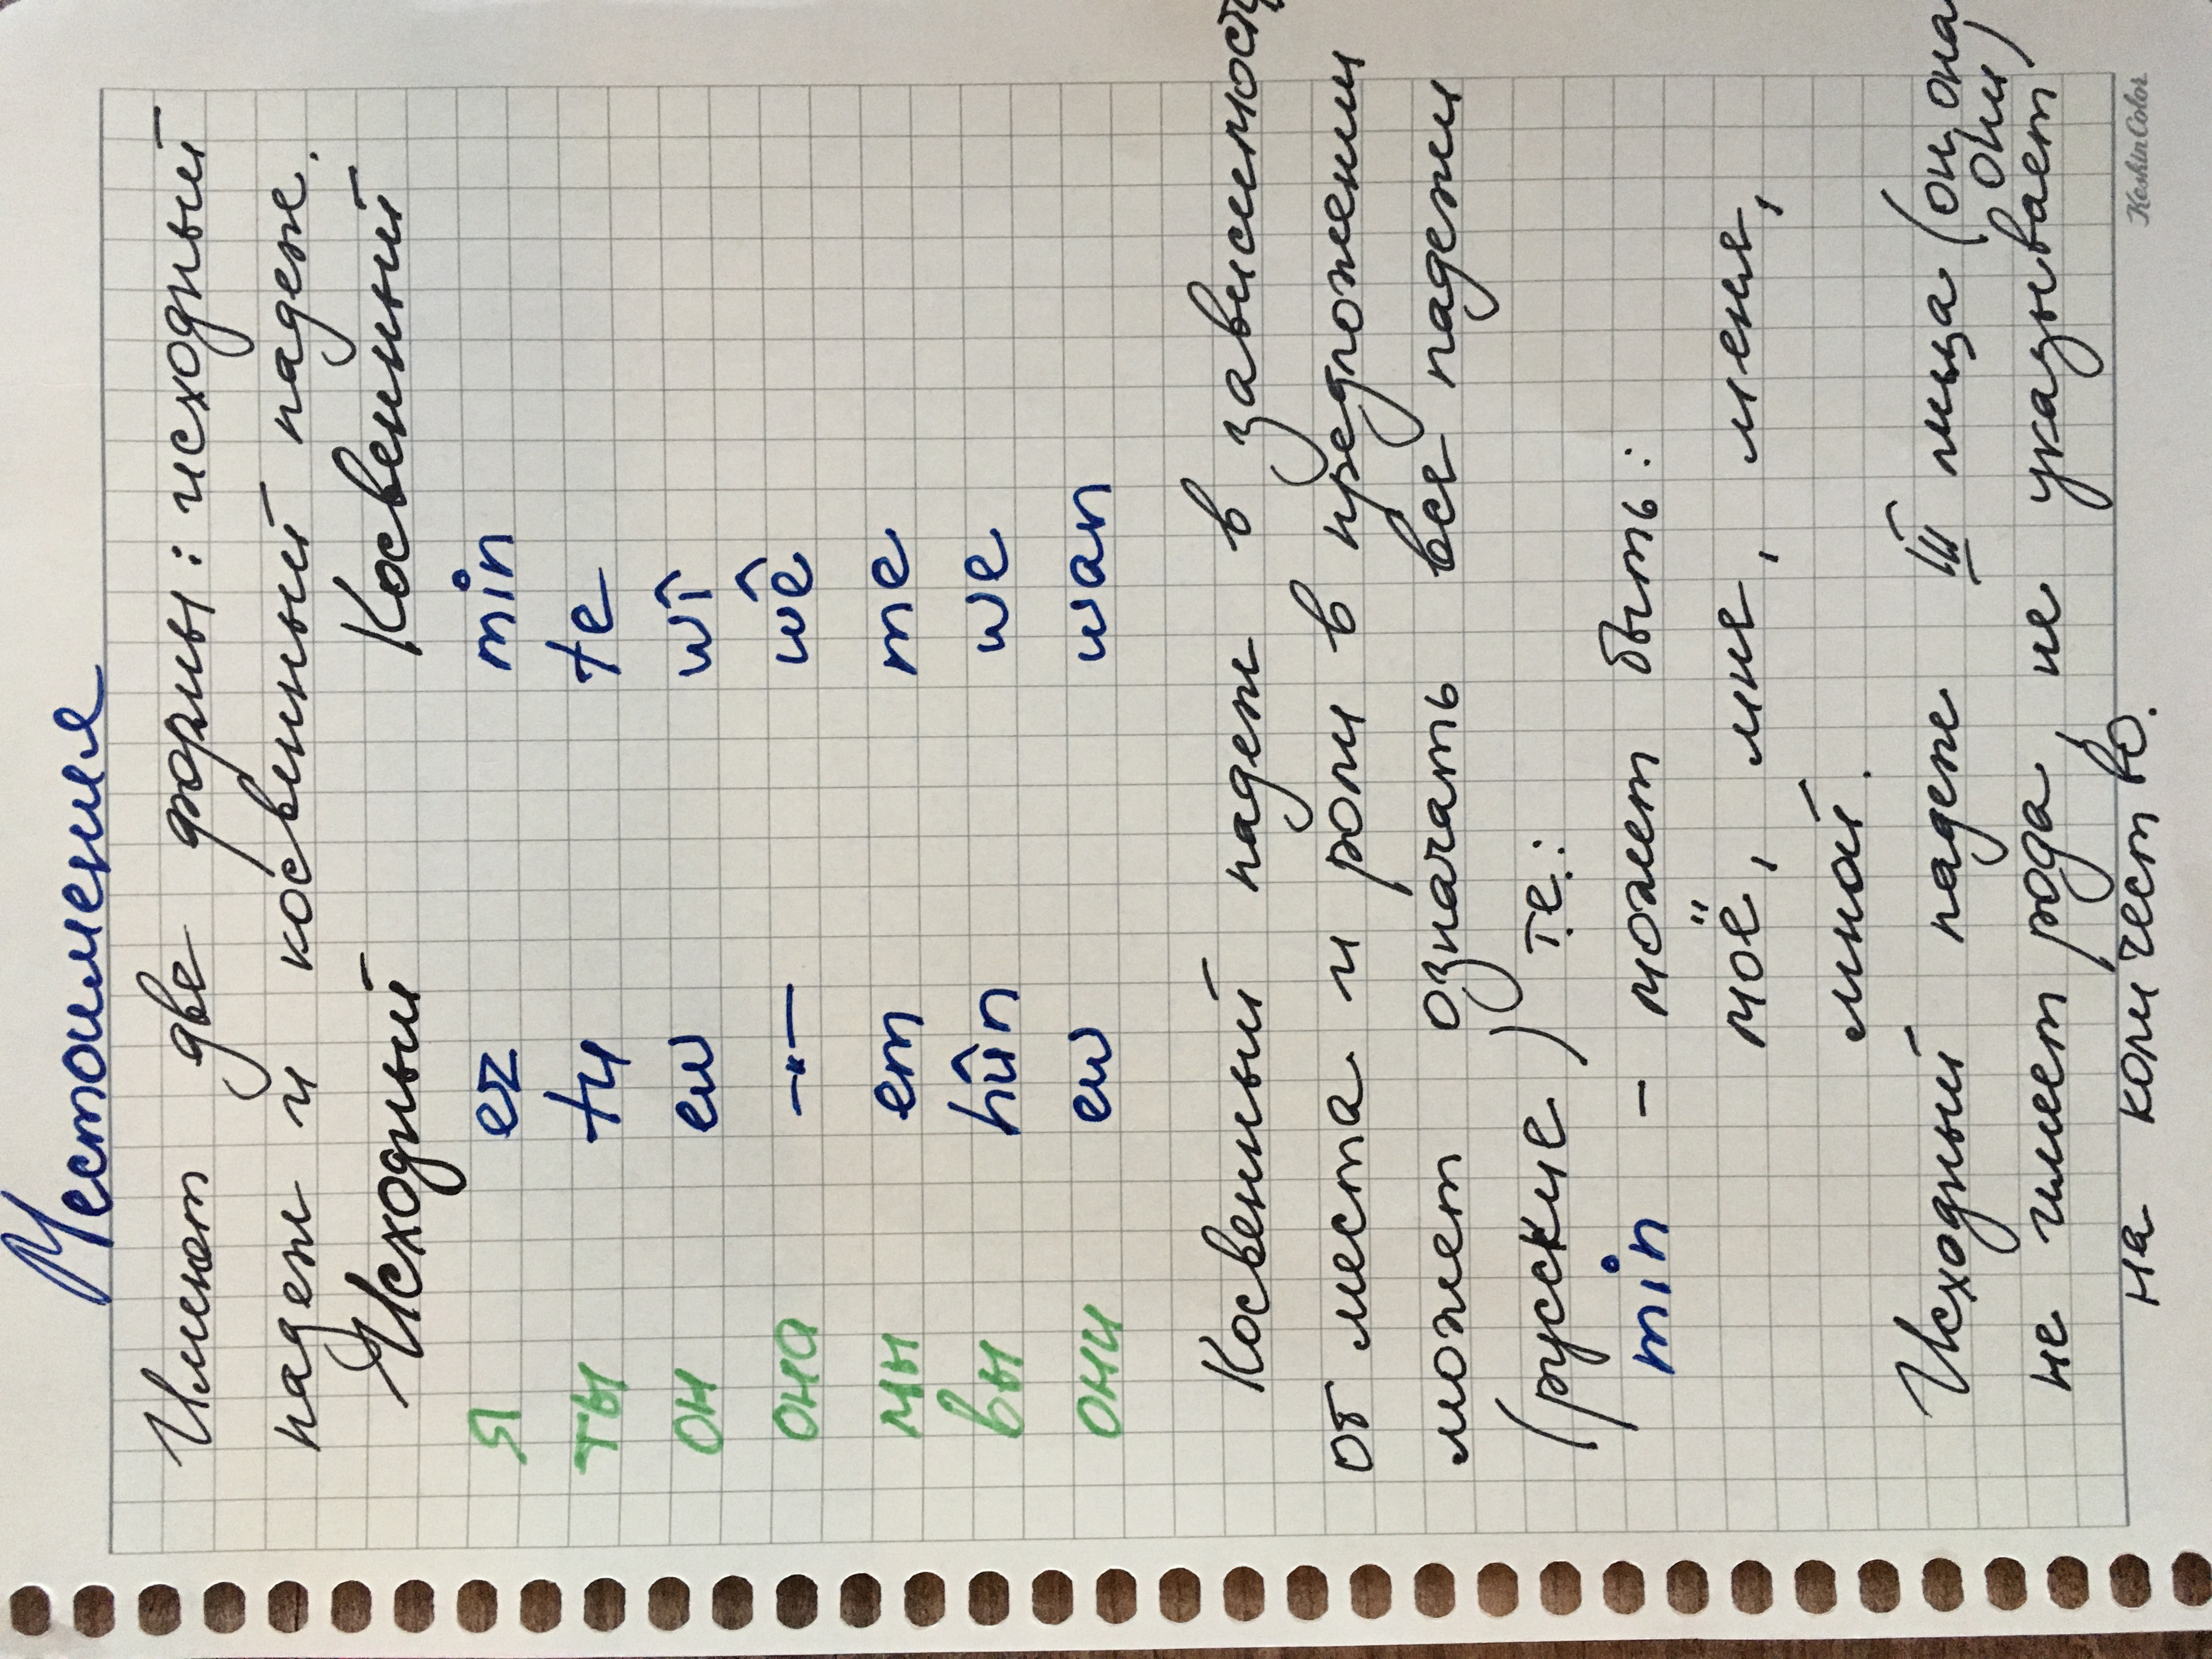 Местоимения
Имеют две формы: исходный
падеж и косвенный падеж.
Исходный Косвенный
я ez min
ты tu te
он ew wî
она —"— wê
мы em me
вы hûn we
они ew wan
Косвенный падеж в зависимости
от места и роли в предложении
может означать все падежи
(русские) т.е.:
min – может быть:
моё, мне, меня,
мной.
Исходный падеж III лица (он, она
они)
не имеет рода, не указывает
на количество.
KeskinColor